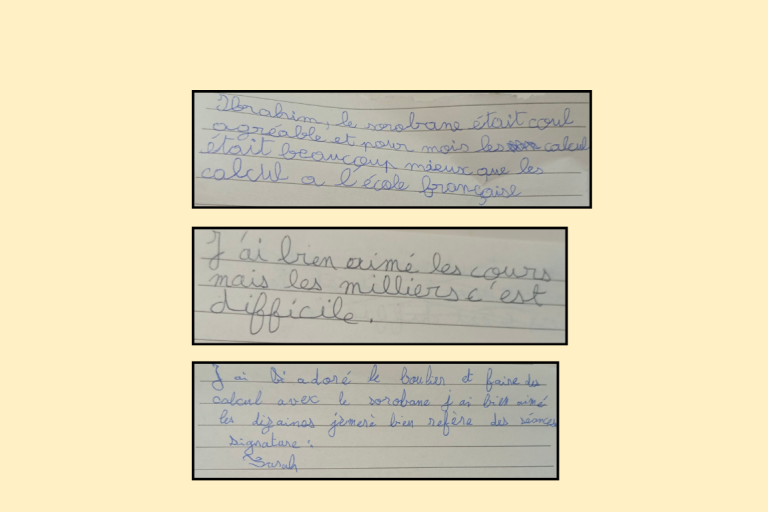 Ibrahim, le sorobane était coul
agréable et pour mois les calcul
était beaucoup mieux que les
calcul a l'école française
J'ai bien aimé les cours
mais les milliers c'est
difficile.
J ai adoré le boulier et faire du
calcul avex le sorobane j ai bien aimé
les dizaines j'emerè bien refère des séances
signature :
Sarah